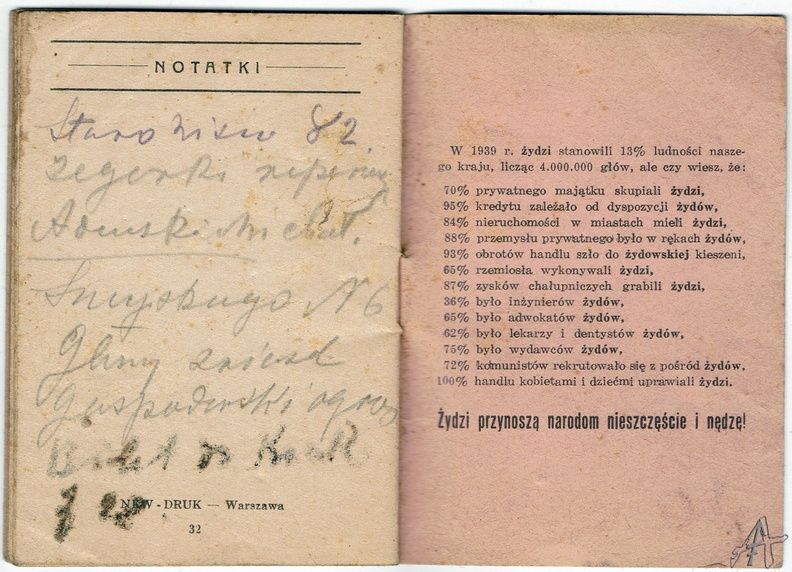 NOTATKI
Staro 82.
zegarki
Adamski Michał.
N 6
Gospodarski
NEW-DRUK — Warszawa
32
W 1939 r. żydzi stanowili 13% ludności nasze-
go kraju, licząc 4.000.000 głów, ale czy wiesz, że:
70% prywatnego majątku skupiali żydzi,
95% kredytu zależało od dyspozycji żydów,
84% nieruchomości w miastach mieli żydzi,
88% przemysłu prywatnego było w rękach żydów,
93% obrotów handlu szło do żydowskiej kieszeni,
65% rzemiosła wykonywali żydzi,
87% zysków chałupniczych grabili żydzi,
36% było inżynierów żydów,
65% było adwokatów żydów,
62% było lekarzy i dentystów żydów,
75% było wydawców żydów,
72% komunistów rekrutowało się z pośród żydów,
100% handlu kobietami i dziećmi uprawiali żydzi.
Żydzi przynoszą narodom nieszczęście i nędzę!
A